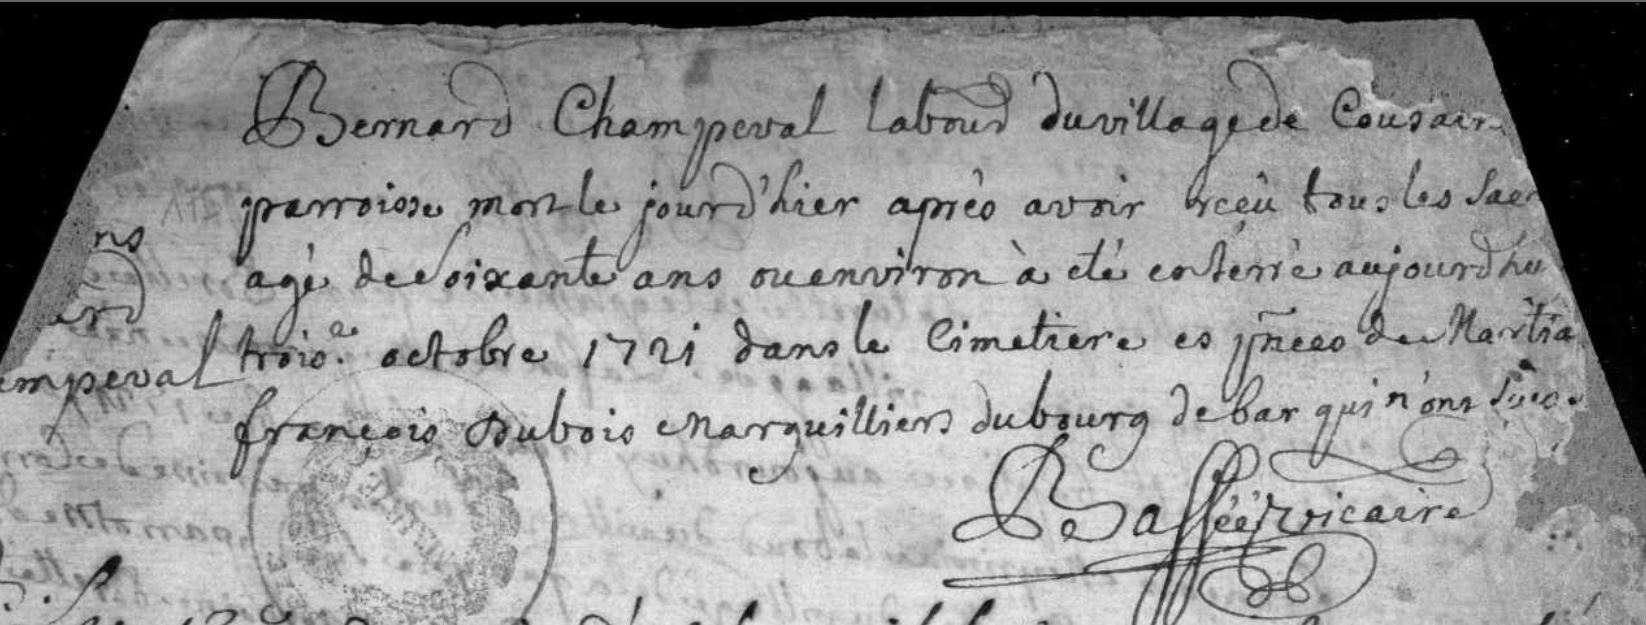 Bernard Champeval labour du village de Cousair
parroisse mort le jourd'hier aprés avoir rcéu tous les Sac
agé de Soixante ans ou environ à eté enterré aujourd'hu
ns
ard
trois.e octobre 1721 dans le Cimetiere es pñces de Martia
empeval
françois Dubois Marguilliers du bourg de bar qui n'ont
vicaire